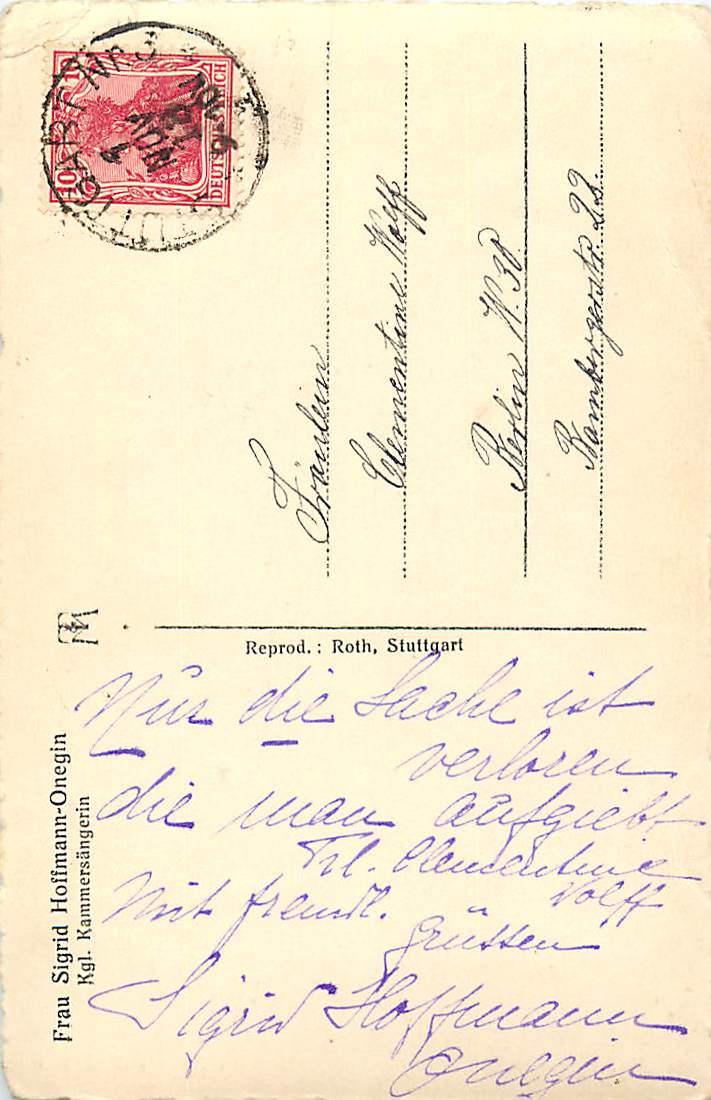 STUTTGART Nr. 3
NOV
10
10
DEUTSCHES REICH
Fräulein
Clementine Wolff
Berlin W. 30
Bambergerstr. 22.
Reprod.: Roth, Stuttgart
Frau Sigrid Hoffmann-Onegin
Kgl. Kammersängerin
Nur die Sache ist
verloren
die man aufgiebt
Frl. Clementine
Wolff
Mit freundl.
Grüssen
Sigrid Hoffmann
Onegin